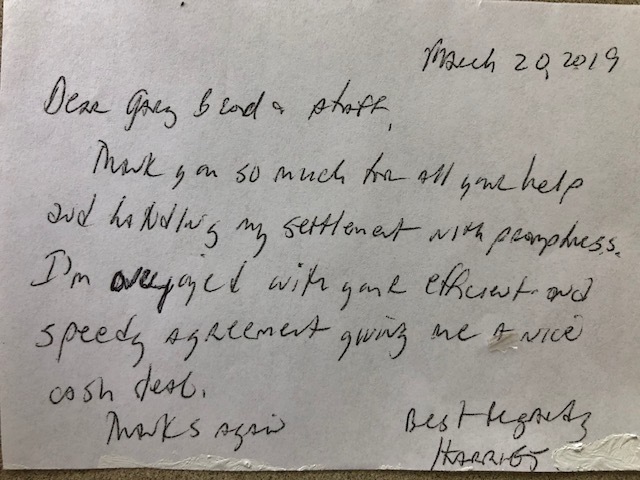 March 20, 2019
Dear Gary & staff,
Thank you so much for all your help
and handling my settlement with promptness.
I'm overjoyed with your efficient and
speedy agreement giving me a nice
cash deal.
Thanks again
Best Regards
HARRIET